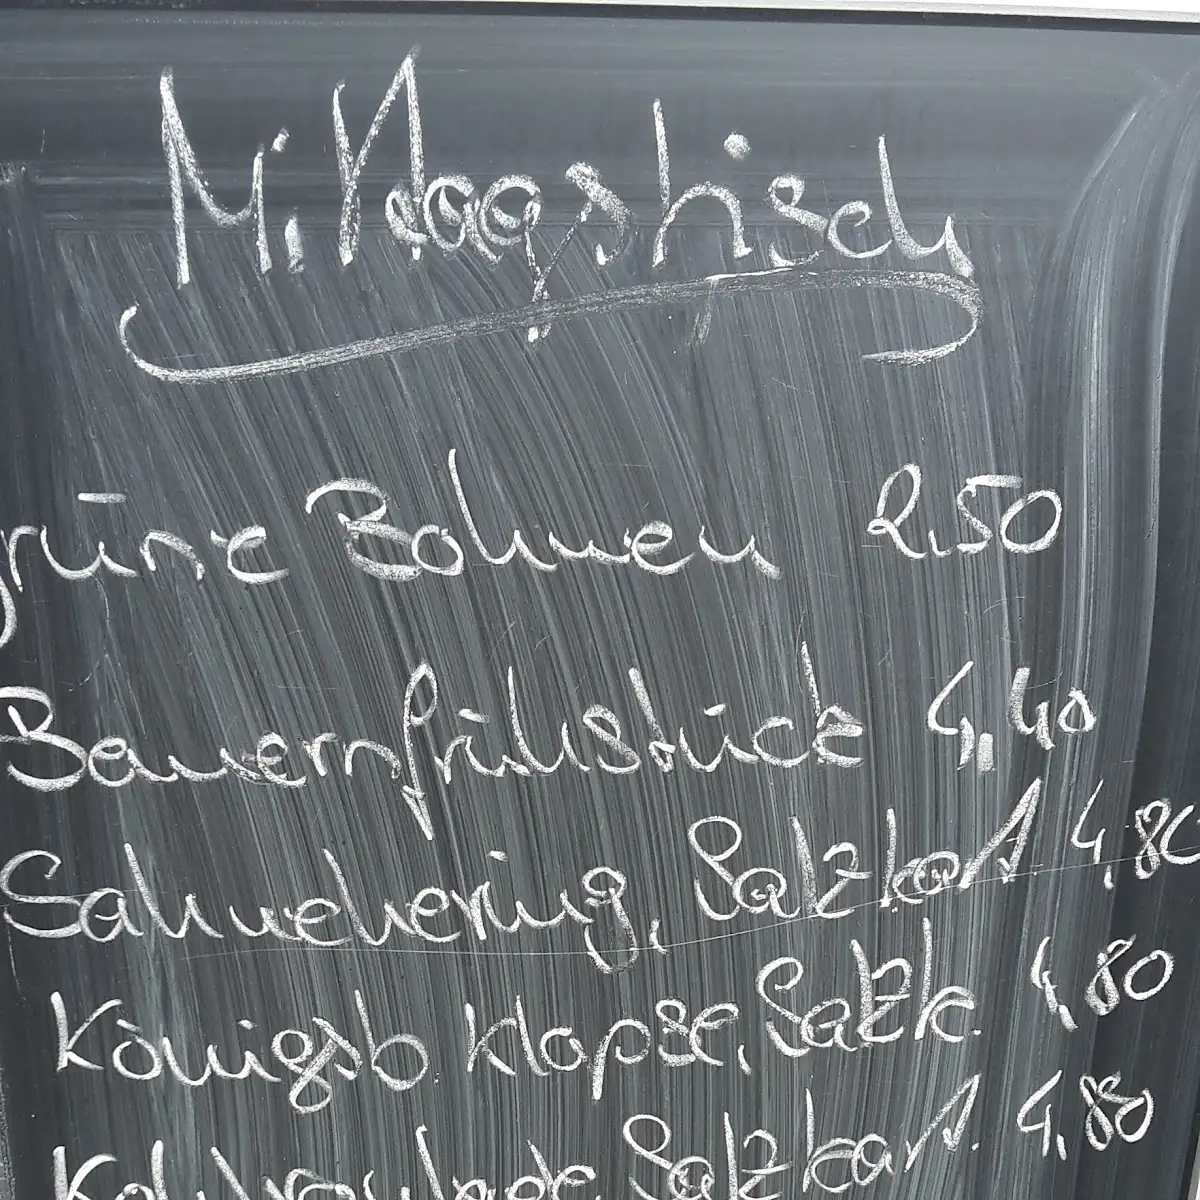 Mittagstisch
grüne Bohnen 2,50
Bauernfrühstück 4,40
Sahnehering, Salzkart. 4,80
Königsb Klopse, Salzk. 4,80
Kohlroulade, Salzkart. 4,80